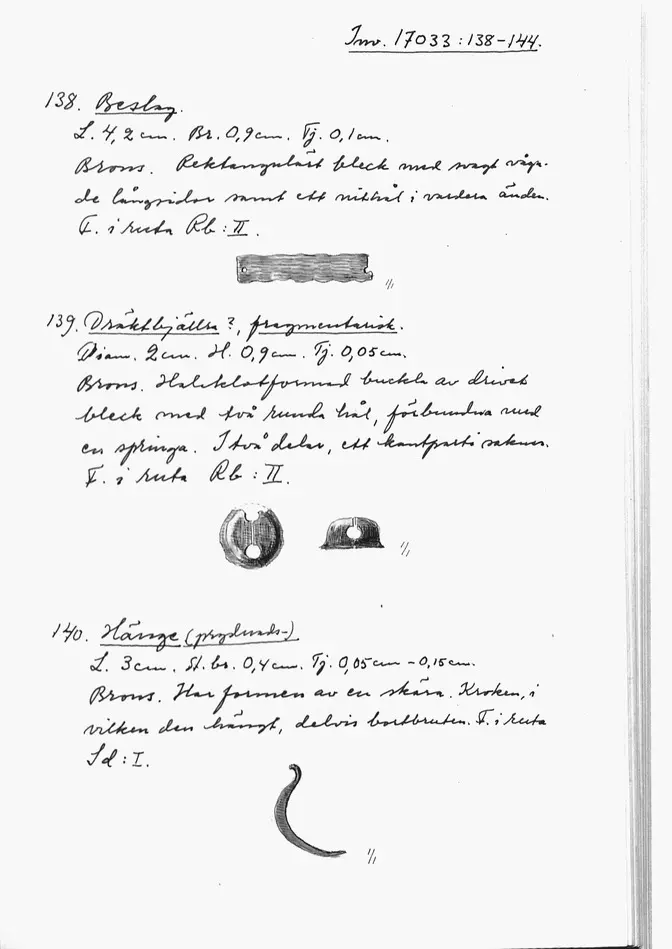 Inv. 17033:138-144.
138. Beslag.
L. 4,2 cm. Br. 0,9 cm. Tj. 0,1 cm.
Brons. Rektangulärt bleck med svagt våga-
de långsidor samt ett nithål i vardera änden.
F. i ruta Rb: II.
1/1
139. Dräktbjällra?, fragmentarisk.
Diam. 2 cm. H. 0,9 cm. Tj. 0,05 cm.
Brons. Halvklotformad buckla av drivet
bleck med två runda hål, förbundna med
en springa. I två delar, ett kantparti saknas.
F. i ruta Rb: II.
1/1
140. Hänge (prydnads-)
L. 3 cm. St. br. 0,4 cm. Tj. 0,05 cm - 0,15 cm.
Brons. Har formen av en skära. Kroken, i
vilken den hängt, delvis bortbruten. F. i ruta
Sd: I.
1/1